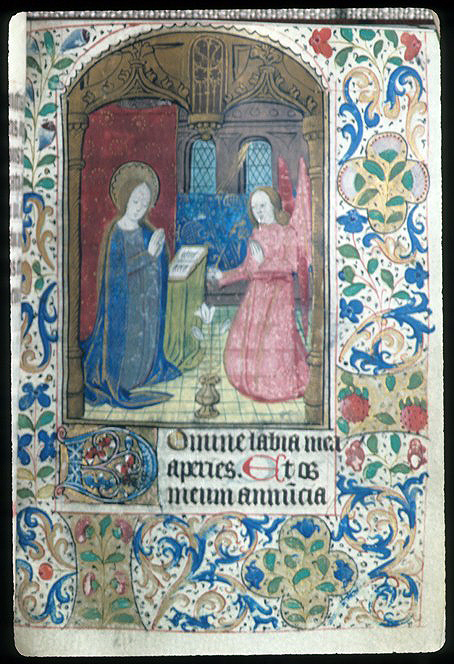 Domine labia mea
aperies. Et os
meum annūcia